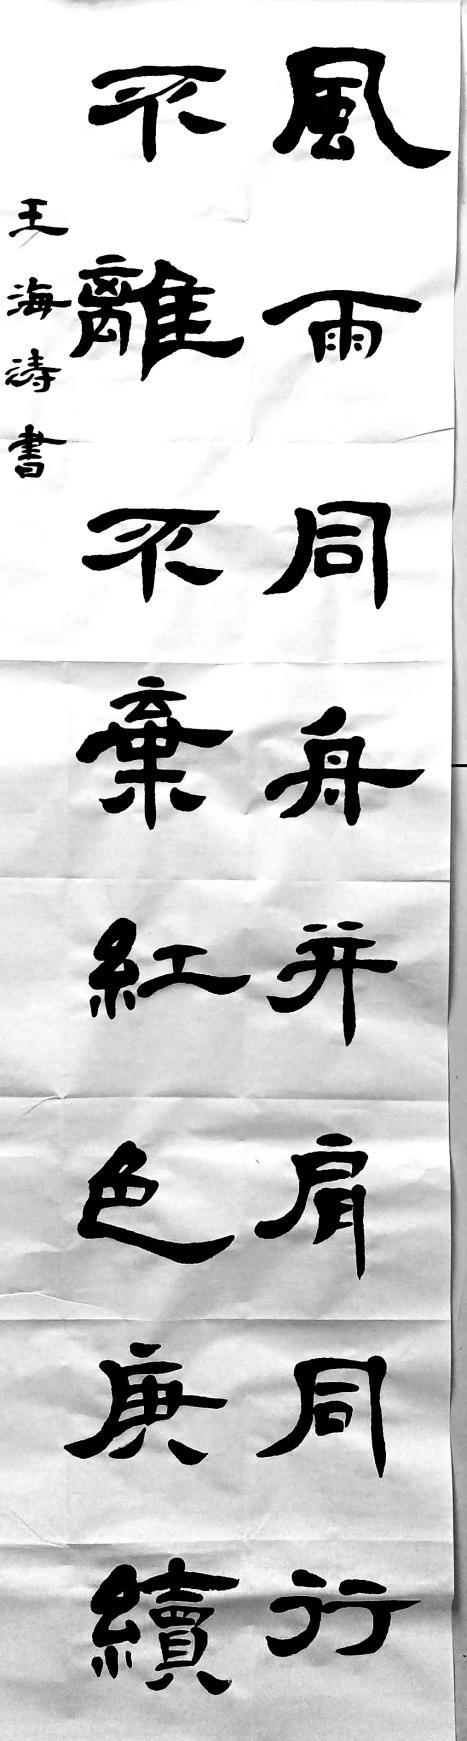 風雨同舟并肩同行
不離不棄紅色庚續
王海涛書